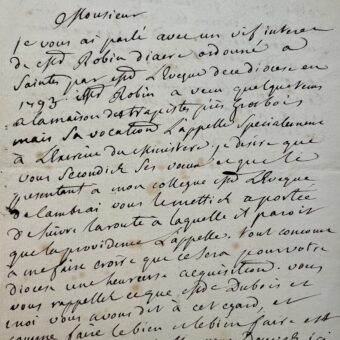 Monsieur
je vous ai parlé avec un vif interet
de Mr Robin diacre ordonné a
Saintes par Mr L'eveque de ce diocese en
1793. Mr Robin a vecu quelque tems
a la maison des trapistes près grosbois
mais sa vocation l'appelle specialement
a l'exercice du Ministere. je desire que
vous secondiez ses vœux et que le
presentant a mon collegue Mr L'eveque
de Cambrai vous le mettiez a portée
de suivre la route a laquelle il paroit
que la providence l'appelle. tout concourt
a me faire croire que ce sera pour votre
diocese une heureuse acquisition. vous
vous rappellez ce que Mr Dubois et
moi vous avons dit a cet egard, et
comme faire le bien et le bien faire est